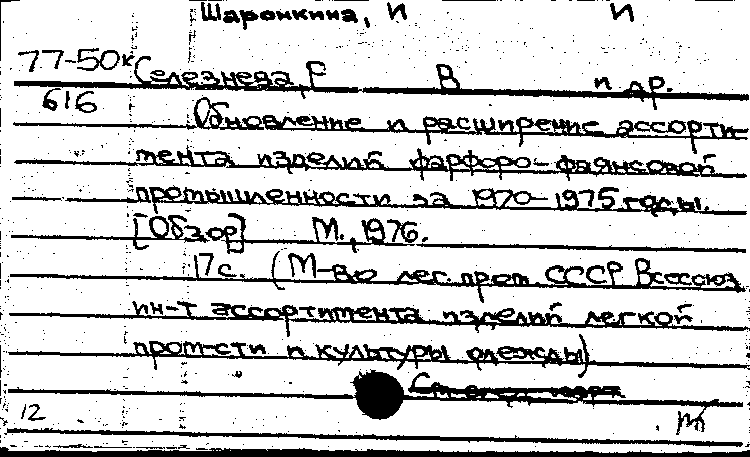 Шаронкина, И И
77-50к Селезнева, Г В и др.
616
Обновление и расширение ассорти-
мента изделий фарфоро-фаянсовой
промышленности за 1970-1975 годы.
[Обзор] М., 1976.
17 с. (М-во лег. пром. СССР Всесоюз.
ин-т ассортимента изделий легкой
пром-сти и культуры одежды)
12